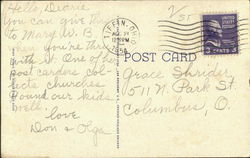 Hello, Dearie
You can give this
to Mary W. B.
when you're thru
with it. One of her
post carders col-
lects churches
Found our kids
well.
love
Don & Olga
TIFFIN, OHIO
1954
POST CARD
3 CENTS 3
Grace Shrider
1511 N. Park St.
Columbus, O.